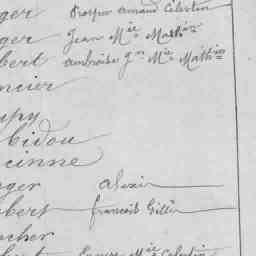 ger Prosper Armand Célestin
ger Jean Mie Mathin
bert Ambroise Jn Mie Mathin
ncier
upy
bidou
cinne
ger
bert François Gilles
ocher
bert Mie Célestin